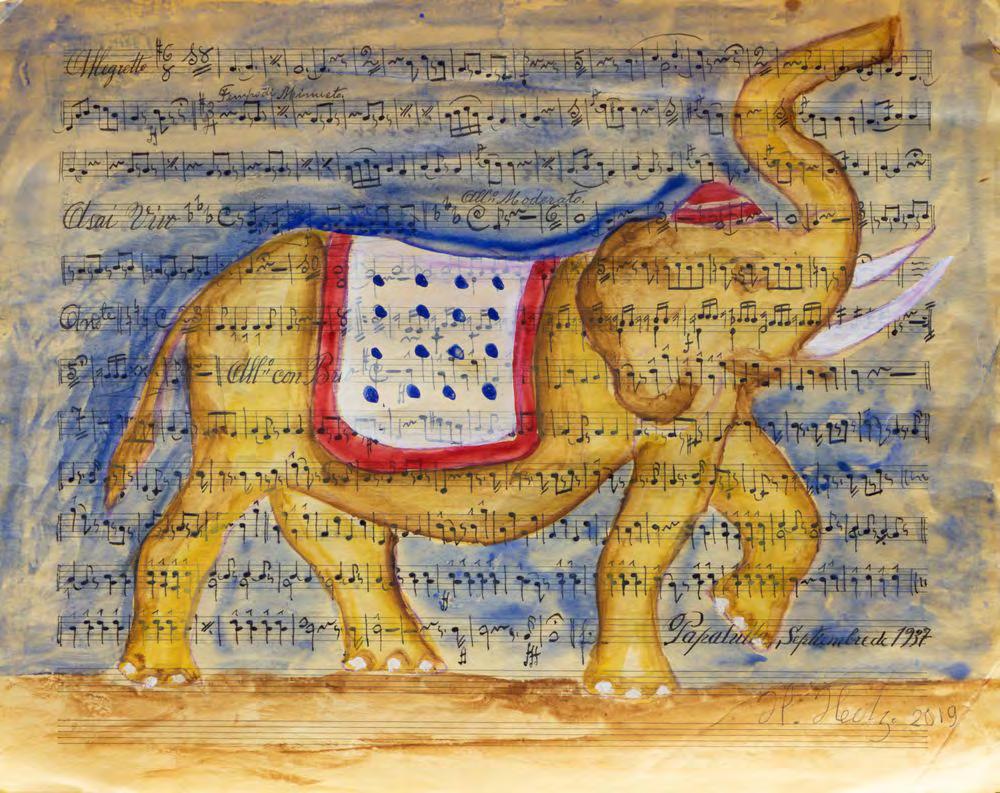 Allegretto
Tempo di Minueto.
Asai Viv
All.º Moderato.
And.te
All.º con Br
Septiembre de 1937
H. 2019